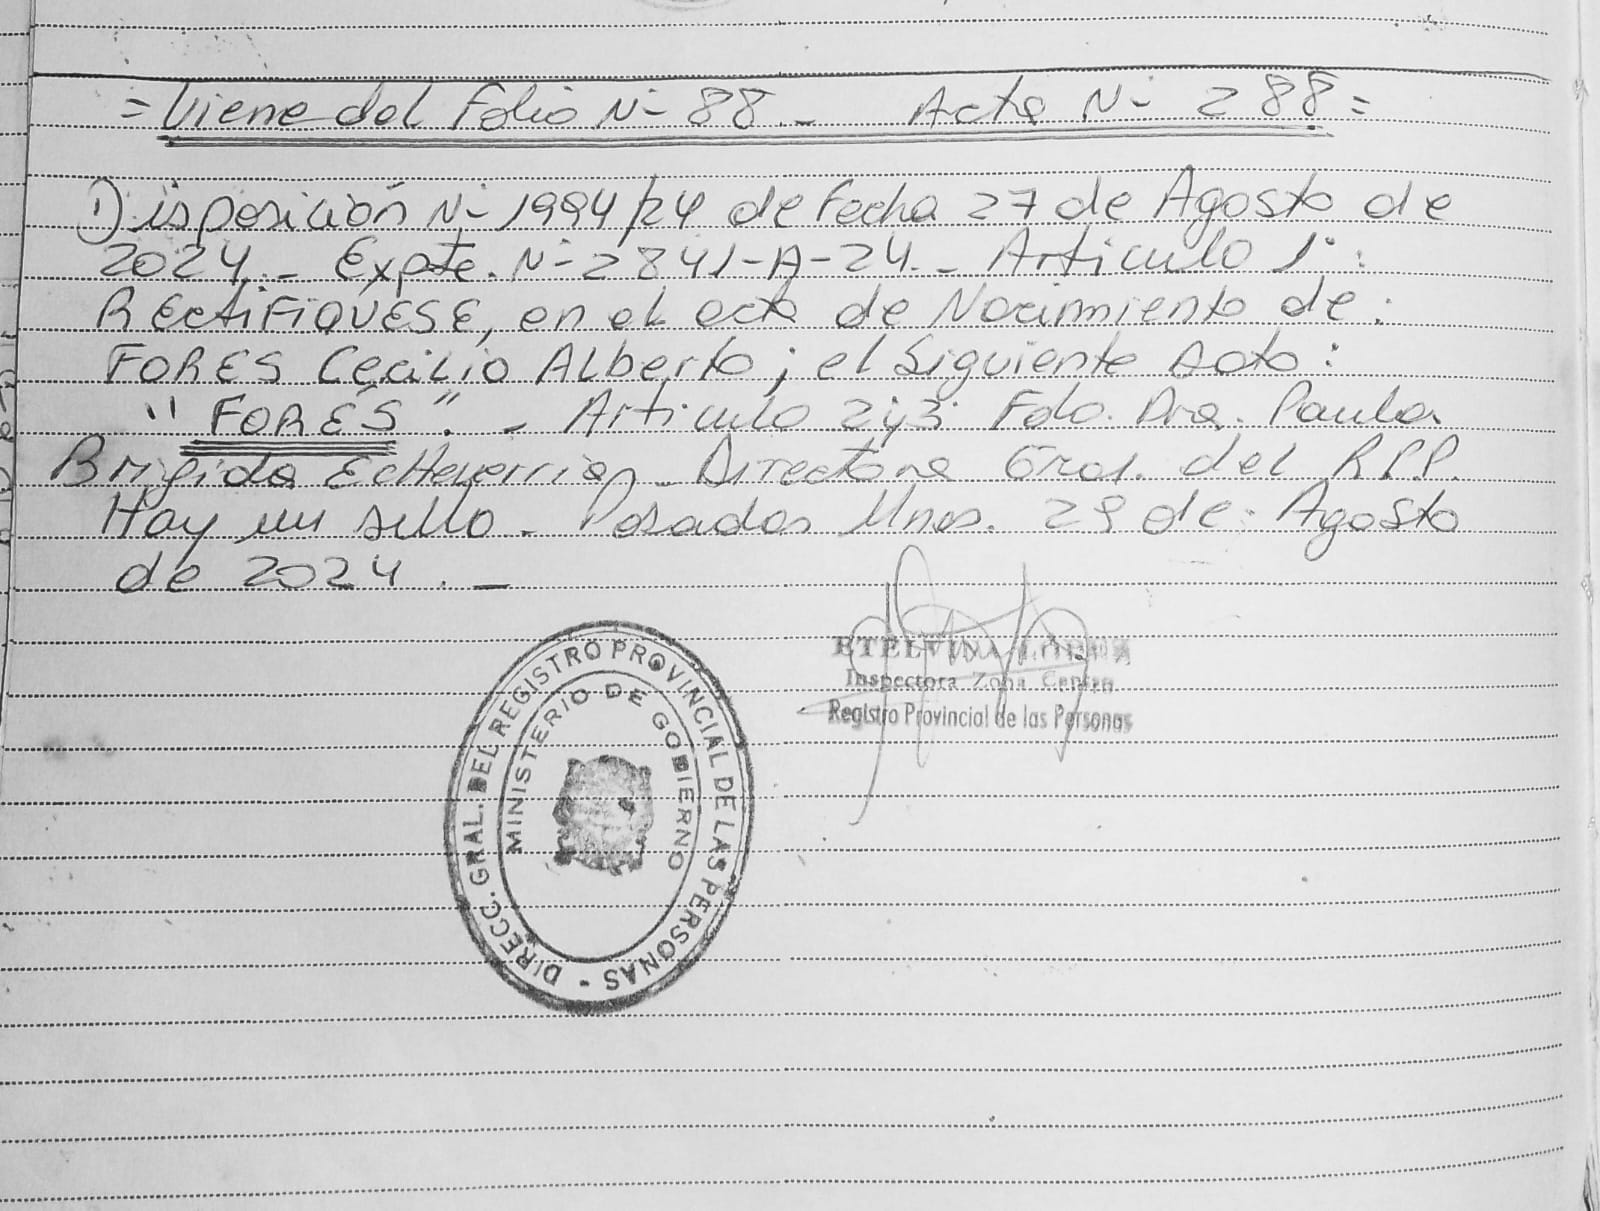 = Viene del Folio N- 88 - Acta N- 288 =
1) Disposición N- 1994/24 de Fecha 27 de Agosto de
2024.- Expte. N- 2841-A-24.- Articulo 1°:
RECTIFIQUESE, en el acta de Nacimiento de:
FORES Cecilio Alberto; el siguiente dato:
"FORÉS".- Articulo 2y3 Fdo. Dra. Paula
Brigida Echeverria - Directora Gral. del R.P.P.
Hay un sello - Posadas Mnes. 29 de Agosto
de 2024.-
ETELVINA
Inspectora Zona Centro
Registro Provincial de las Personas
DIRECC. GRAL. DEL REGISTRO PROVINCIAL DE LAS PERSONAS -
MINISTERIO DE GOBIERNO